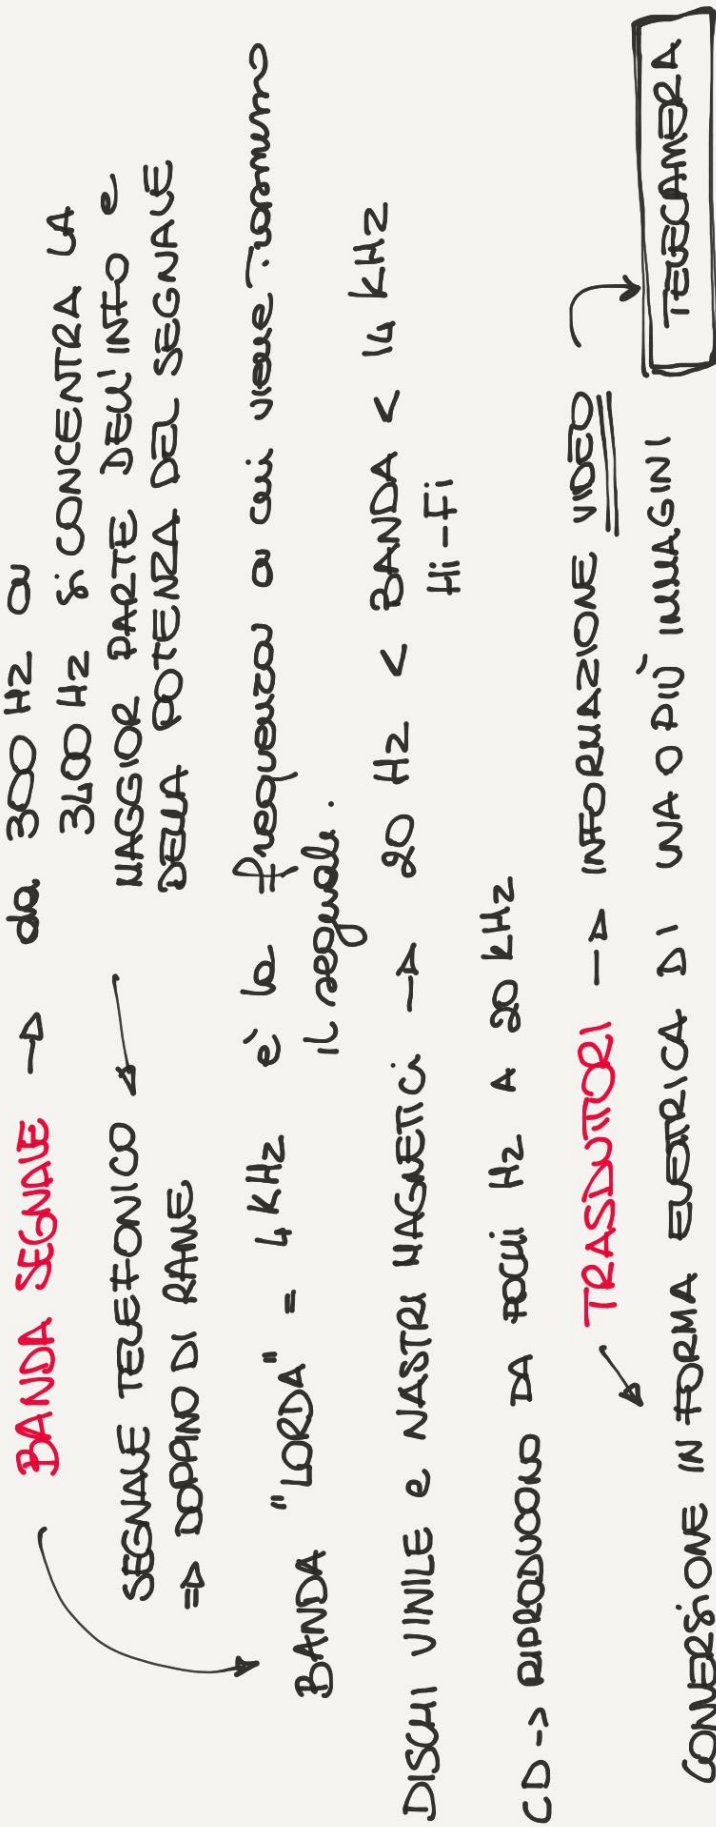 BANDA SEGNALE → da 300 Hz a
3400 Hz si CONCENTRA LA
MAGGIOR PARTE DELL'INFO e
DELLA POTENZA DEL SEGNALE
SEGNALE TELEFONICO
⇒ DOPPINO DI RAME
BANDA "LORDA" = 4 KHz è la frequenza a cui viene trasmesso
il segnale.
DISCHI VINILE e NASTRI MAGNETICI → 20 Hz < BANDA < 14 KHz
Hi-Fi
CD -> RIPRODUCONO DA POCHI Hz A 20 KHz
TRASDUTTORI → INFORMAZIONE VIDEO
TELECAMERA
CONVERSIONE IN FORMA ELETTRICA DI UNA O PIÙ IMMAGINI